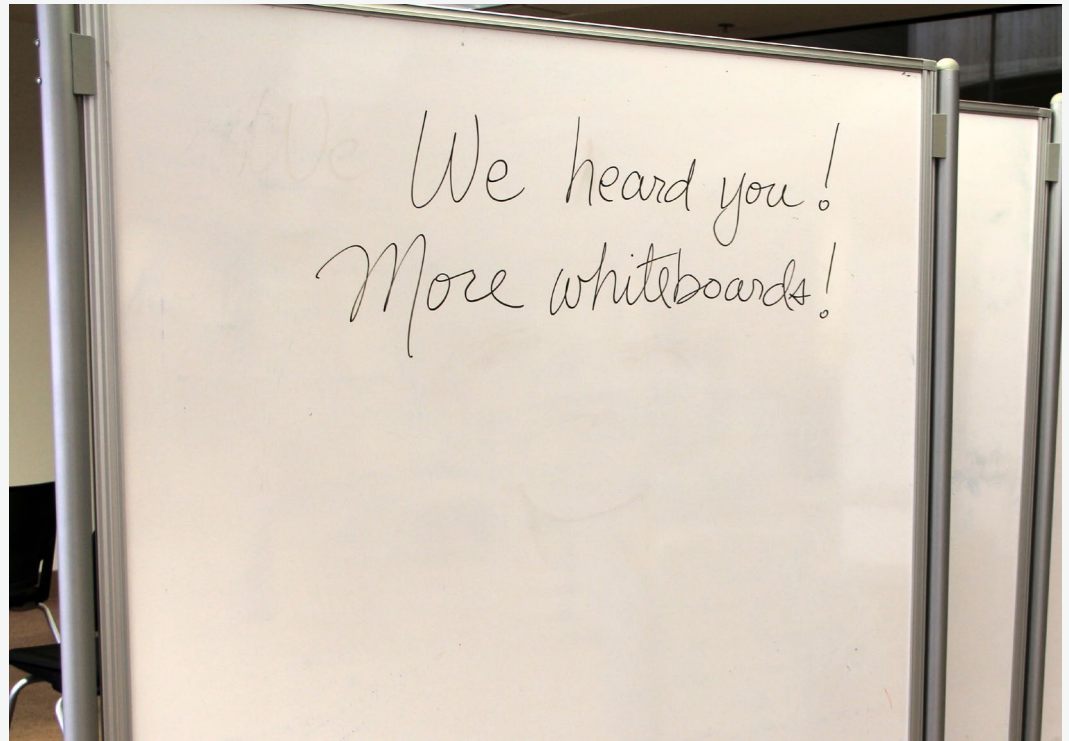 We heard you!
More whiteboards!